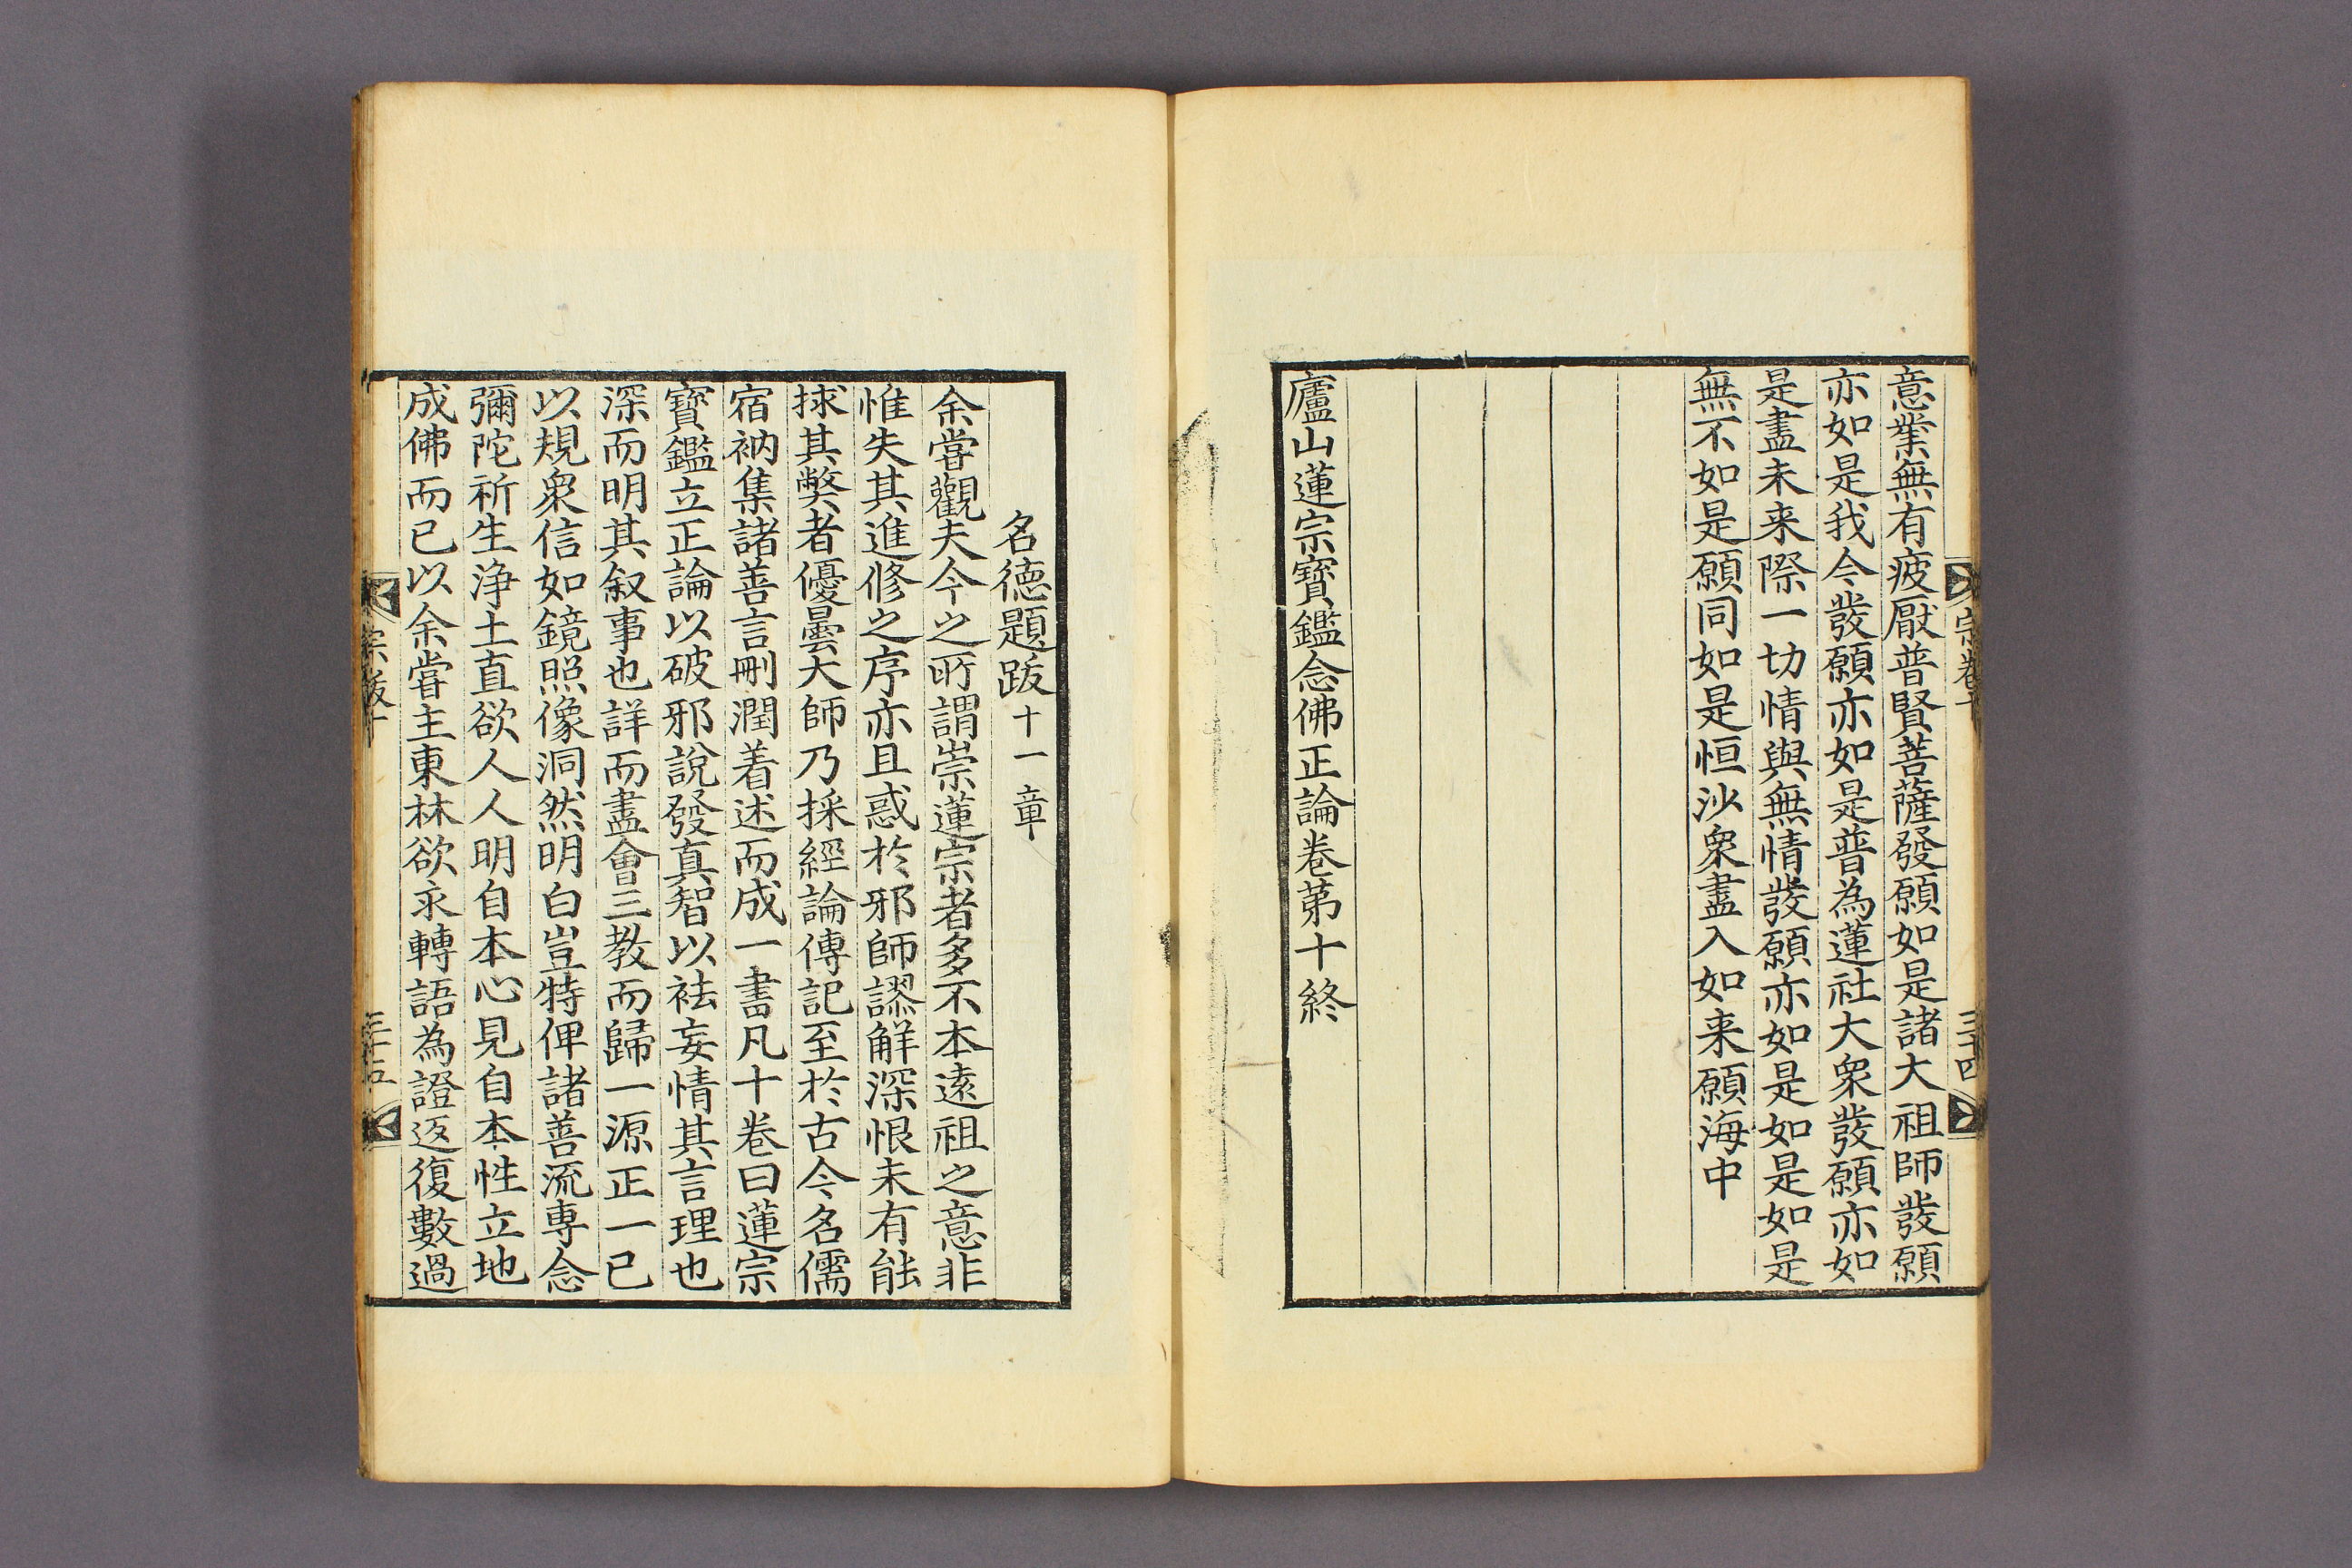 意業無有疲厭普賢菩薩發願如是諸大祖師發願
亦如是我今發願亦如是普為蓮社大衆發願亦如
是盡未来際一切情與無情發願亦如是如是如是
無不如是願同如是恒沙衆盡入如来願海中
廬山蓮宗寳鑑念佛正論卷第十終
名德題跋十一章
余嘗觀夫今之所謂崇蓮宗者多不本遠祖之意非
惟失其進修之序亦且惑於邪師謬解深恨未有能
捄其弊者優曇大師乃採經論傳記至於古今名儒
宿衲集諸善言刪潤着述而成一書凡十卷曰蓮宗
寳鑑立正論以破邪說發真智以祛妄情其言理也
深而明其叙事也詳而盡會三教而歸一源正一已
以規衆信如鏡照像洞然明白豈特俾諸善流專念
彌陀祈生淨土直欲人人明自本心見自本性立地
成佛而已以余嘗主東林欲求轉語為證返復數過